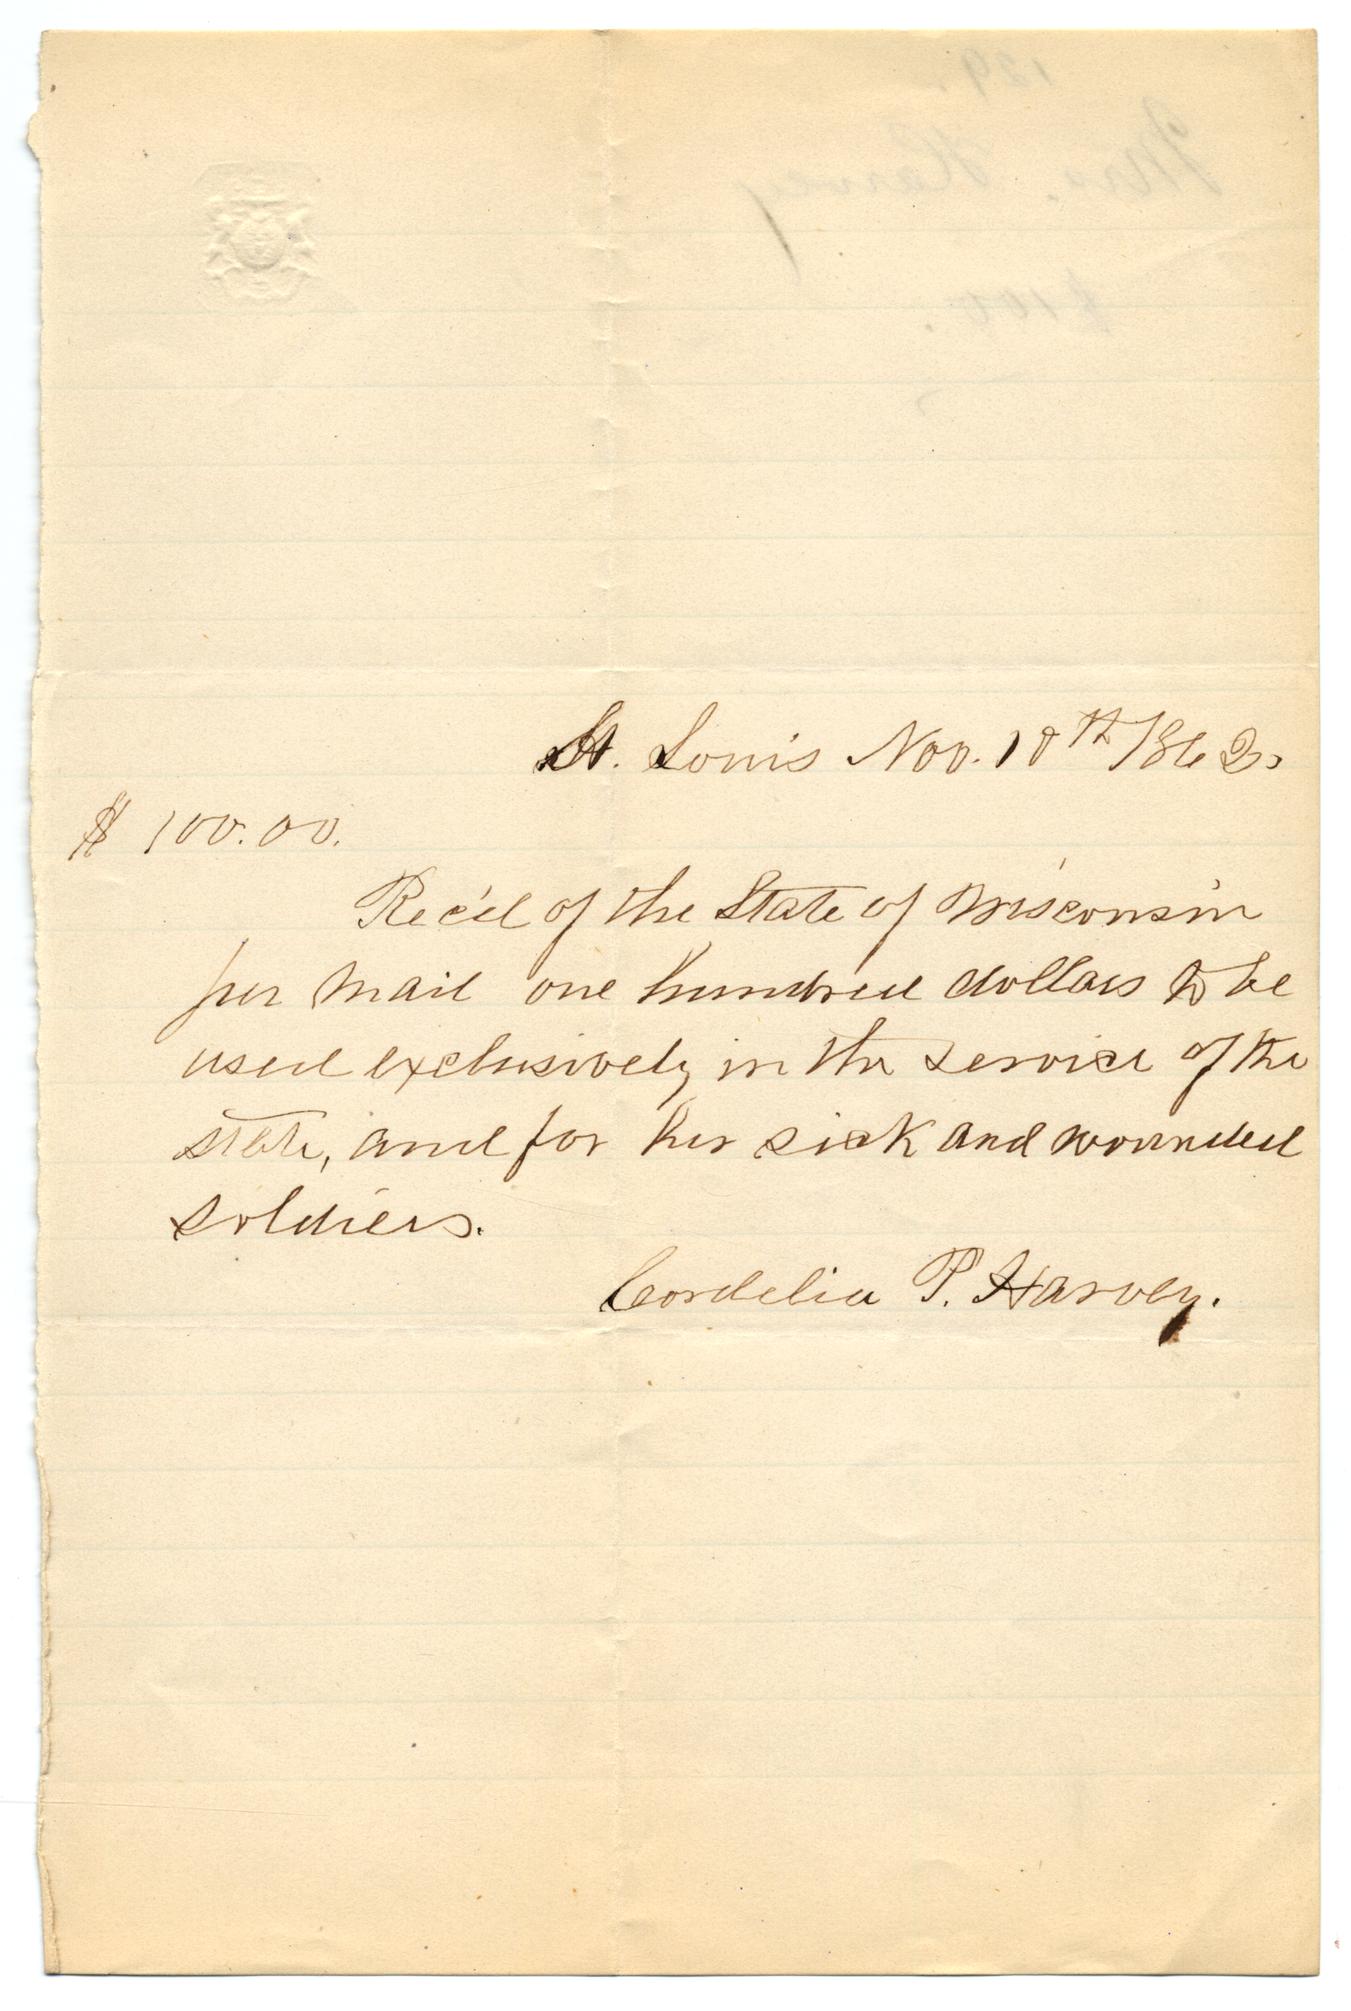 129.
Mrs. Harvey
$100.
St. Louis Nov. 18th 1862.
$ 100.00.
Rec'd of the State of Wisconsin
per mail one hundred dollars to be
used exclusively in the service of the
state, and for her sick and wounded
soldiers.
Cordelia P. Harvey.